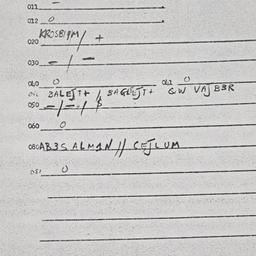 011 —
012 0
020 KROSBIPM/ +
030 — / —
040 0 0
041 BALEJT+ / BAGLEJT+ GW VAJ BBR
050 —/—/
060 0
080 AB3S ALM1N // CEJLUM
081 0